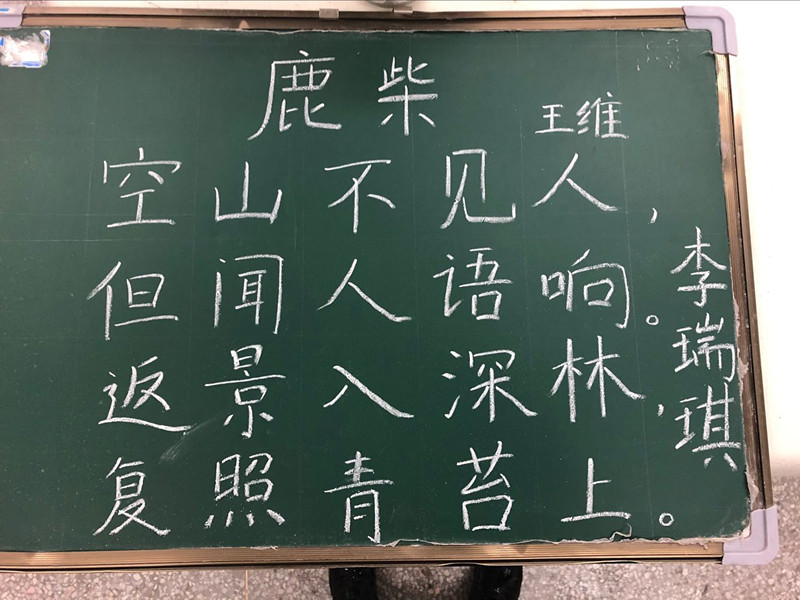 鹿柴
王维
空山不见人，
但闻人语响。
返景入深林，
复照青苔上。
李瑞琪